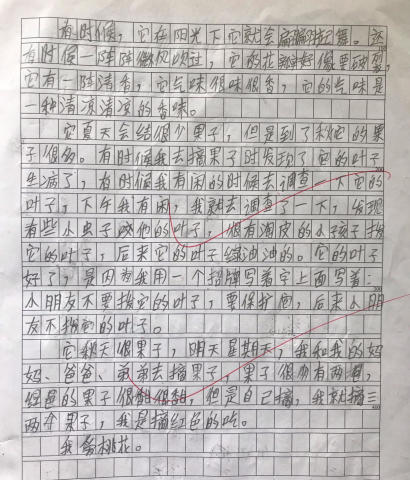 有时候，它在阳光下它就会扁扁起舞。还
有时候一阵阵微风吹过，它的花都好像要
它有一阵清香，它气味很味很香，它的气味是
一种清凉清凉的香味。
它夏天会结很少果子，但是到了秋它的果
子很多。有时候我去摘果子时发现了它的叶子
生病了，有时候我有闲的时候去调查一下它的
叶子，下午我有闲，我就去调查了一下，发现
有些小虫子咬他的叶子，很有淘皮的小孩子拔
它的叶子，后来它的叶子绿油油的。它的叶子
好了，是因为我用一个招牌写着字上面写着：
小朋友不要拔它的叶子，要保护，后来小朋
友不拔的叶子。
它秋天很果子，明天星期天，我和我的妈
妈、爸爸、弟弟去摘果子，果子很有两
色的果子很甜很甜，但是自己摘，我就摘三
两个果子，我是摘红色的吃。
我爱桃花。